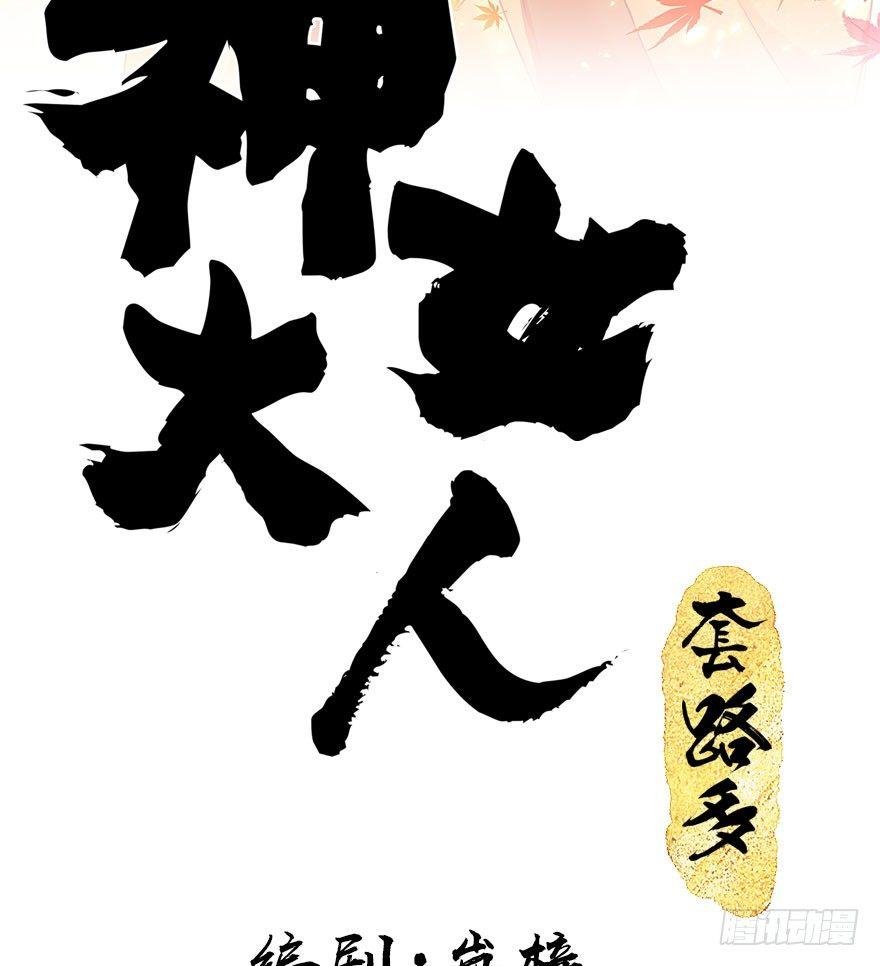 神女大人
套路多
编剧：岚樱
腾讯动漫